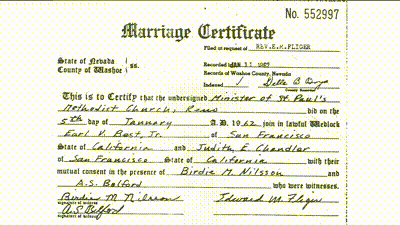 No. 552997
Marriage Certificate
Filed at request of REV. E. M. FLIGER
State of Nevada
County of Washoe } ss.
Recorded JAN 11 1962
Records of Washoe County, Nevada
Indexed 1 Della B Boyd
County Recorder
This is to Certify that the undersigned Minister of St. Paul's
Methodist Church, Reno did on the
5th day of January A. D. 1962 join in lawful Wedlock
Earl V. Best, Jr. of San Francisco
State of California and Judith E Chandler
of San Francisco State of California with their
mutual consent in the presence of Birdie M. Nilsson and
A.S. Belford who were witnesses.
Birdie M Nilsson Edward M. Fliger
signature of witness
A.S. Belford
signature of witness